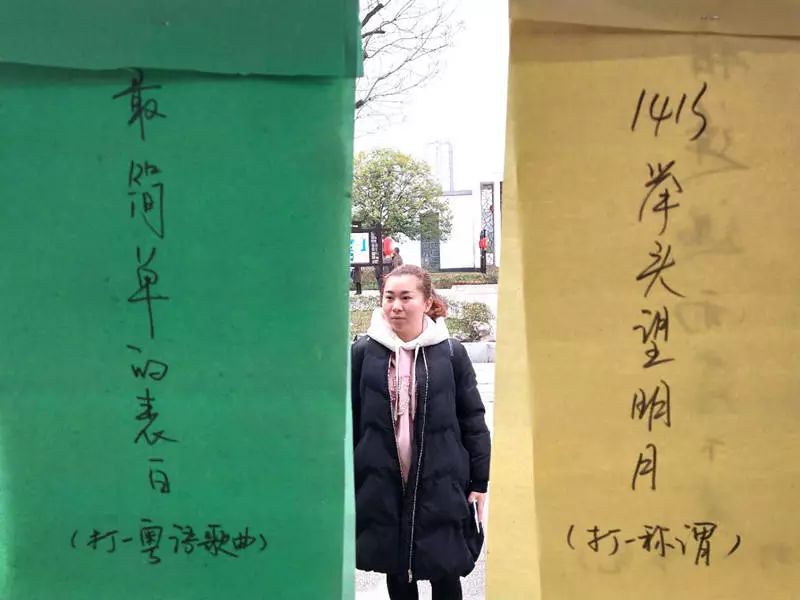 最简单的表白
(打一粤语歌曲)
1415
举头望明月
(打一称谓)